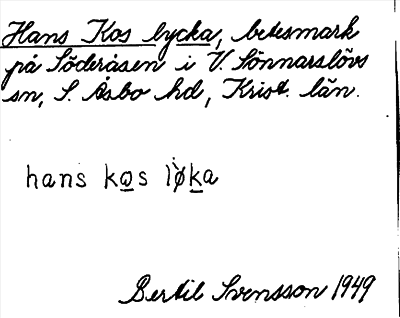 Hans Kos lycka, betesmark
på Söderåsen i V. Sönnarslövs
sn, S. Åsbo hd, Krist. län.
hans kos lø̀ka
Bertil Svensson 1949